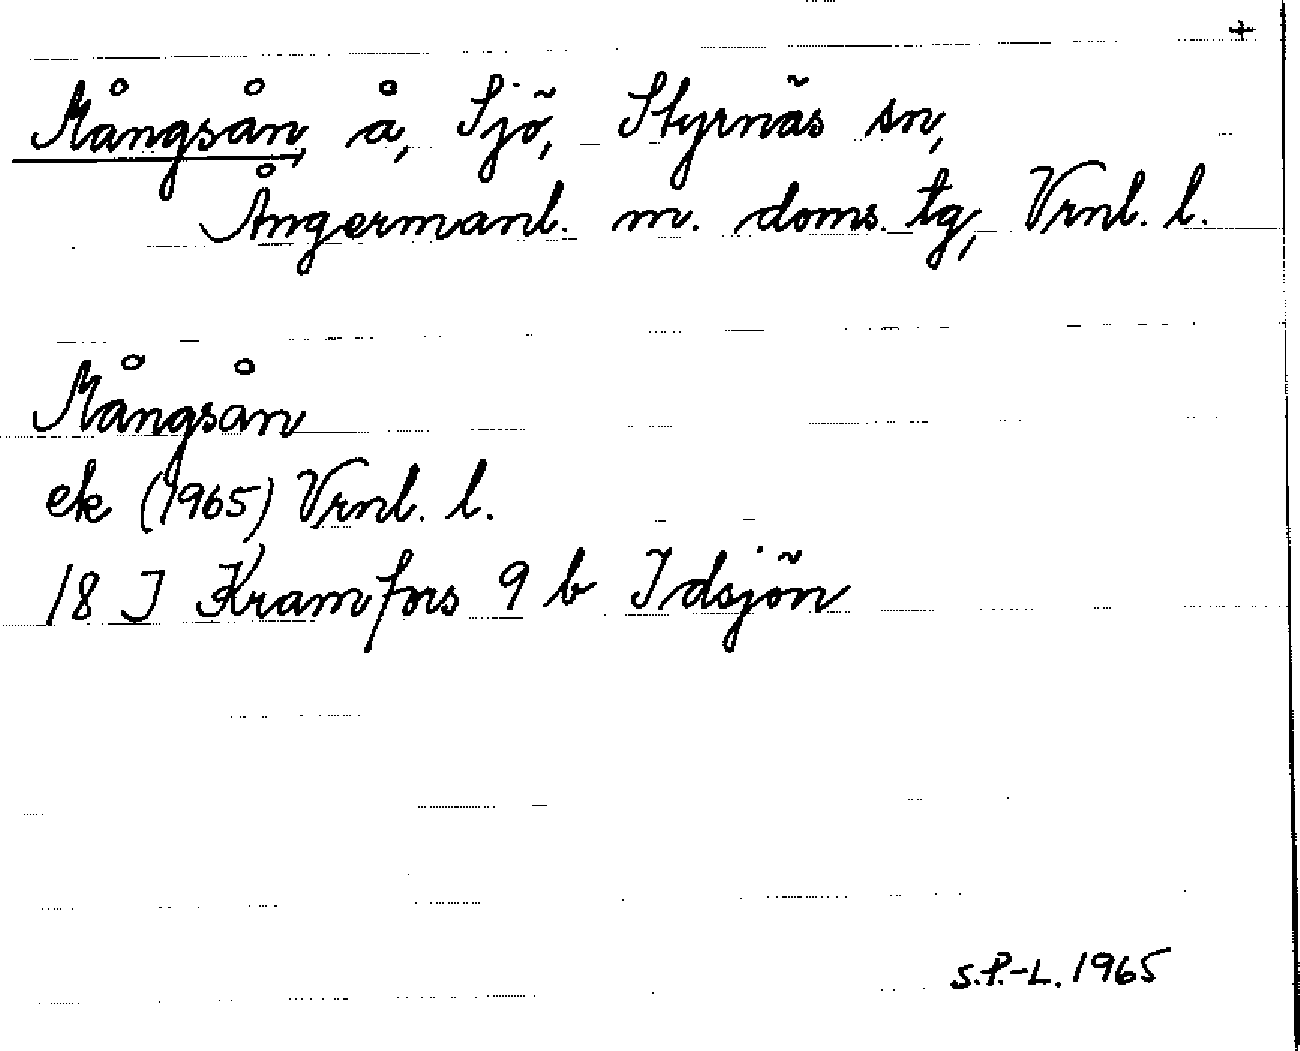 +
Mångsån, å, Sjö, Styrnäs sn,
Ångermanl. m. doms. tg, Vrnl. l.
Mångsån
ek (1965) Vrnl. l.
18 J Kramfors 9 b Idsjön
S.P.-L. 1965